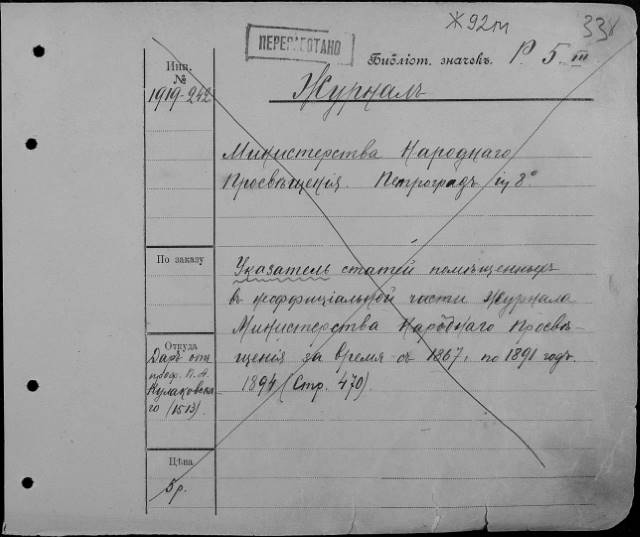 Ж 92м
338
ПЕРЕРАБОТАНО
Библіот. значекъ. Р. 5. III
Инв.
№
1919-242
Журналъ
Министерства Народнаго
Просвѣщенія. Петроградъ in 8°
По заказу
Указатель статей помѣщенныхъ
въ неоффиціальной части Журнала
Министерства Народнаго Просвѣ-
щенія за время съ 1867, по 1891 годъ.
1894 (Стр. 470).
Откуда
Даръ отъ
проф. П. А.
Кулаковска-
го (1513).
Цѣна
5 р.